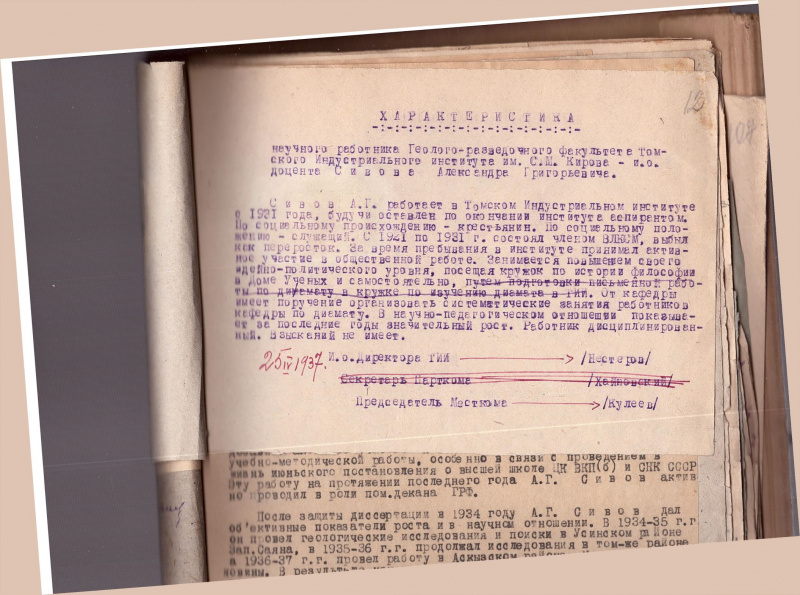 12
ХАРАКТЕРИСТИКА
-:-:-:-:-:-:-:-:-:-:-:-:-
научного работника Геолого-разведочного факультета Том-
ского Индустриального института им. С.М. Кирова - и.о.
доцента Сивова Александра Григорьевича.
Сивов А.Г. работает в Томском Индустриальном институте
с 1931 года, будучи оставлен по окончании института аспирантом.
По социальному происхождению - крестьянин. По социальному поло-
жению - служащий. С 1921 по 1931 г. состоял членом ВЛКСМ, выбыл
как переросток. За время пребывания в институте принимал актив-
ное участие в общественной работе. Занимается повышением своего
идейно-политического уровня, посещая кружок по истории философии
в Доме Ученых и самостоятельно, путем подготовки письменной рабо-
ты по диамату в кружке по изучению диамата в ТИИ. От кафедры
имеет поручение организовать систематические занятия работников
кафедры по диамату. В научно-педагогическом отношении показыва-
ет за последние годы значительный рост. Работник дисциплинирован-
ный. Взысканий не имеет.
25/IV 1937. И.о.Директора ТИИ /Нестеров/
Секретарь Парткома /Хайновский/
Председатель Месткома /Кулеев/
учебно-методической работы, особенно в связи с проведением в
жизнь июньского постановления о высшей школе ЦК ВКП(б) и СНК СССР
Эту работу на протяжении последнего года А.Г. Сивов актив
но проводил в роли пом.декана ГРФ.
После защиты диссертации в 1934 году А.Г. Сивов дал
об'ективные показатели роста и в научном отношении. В 1934-35 г.г
он провел геологические исследования и поиски в Усинском районе
Зап.Саяна, в 1935-36 г.г. продолжал исследования в том-же районе
а 1936-37 г.г. провел работу в Аскызском
В результате